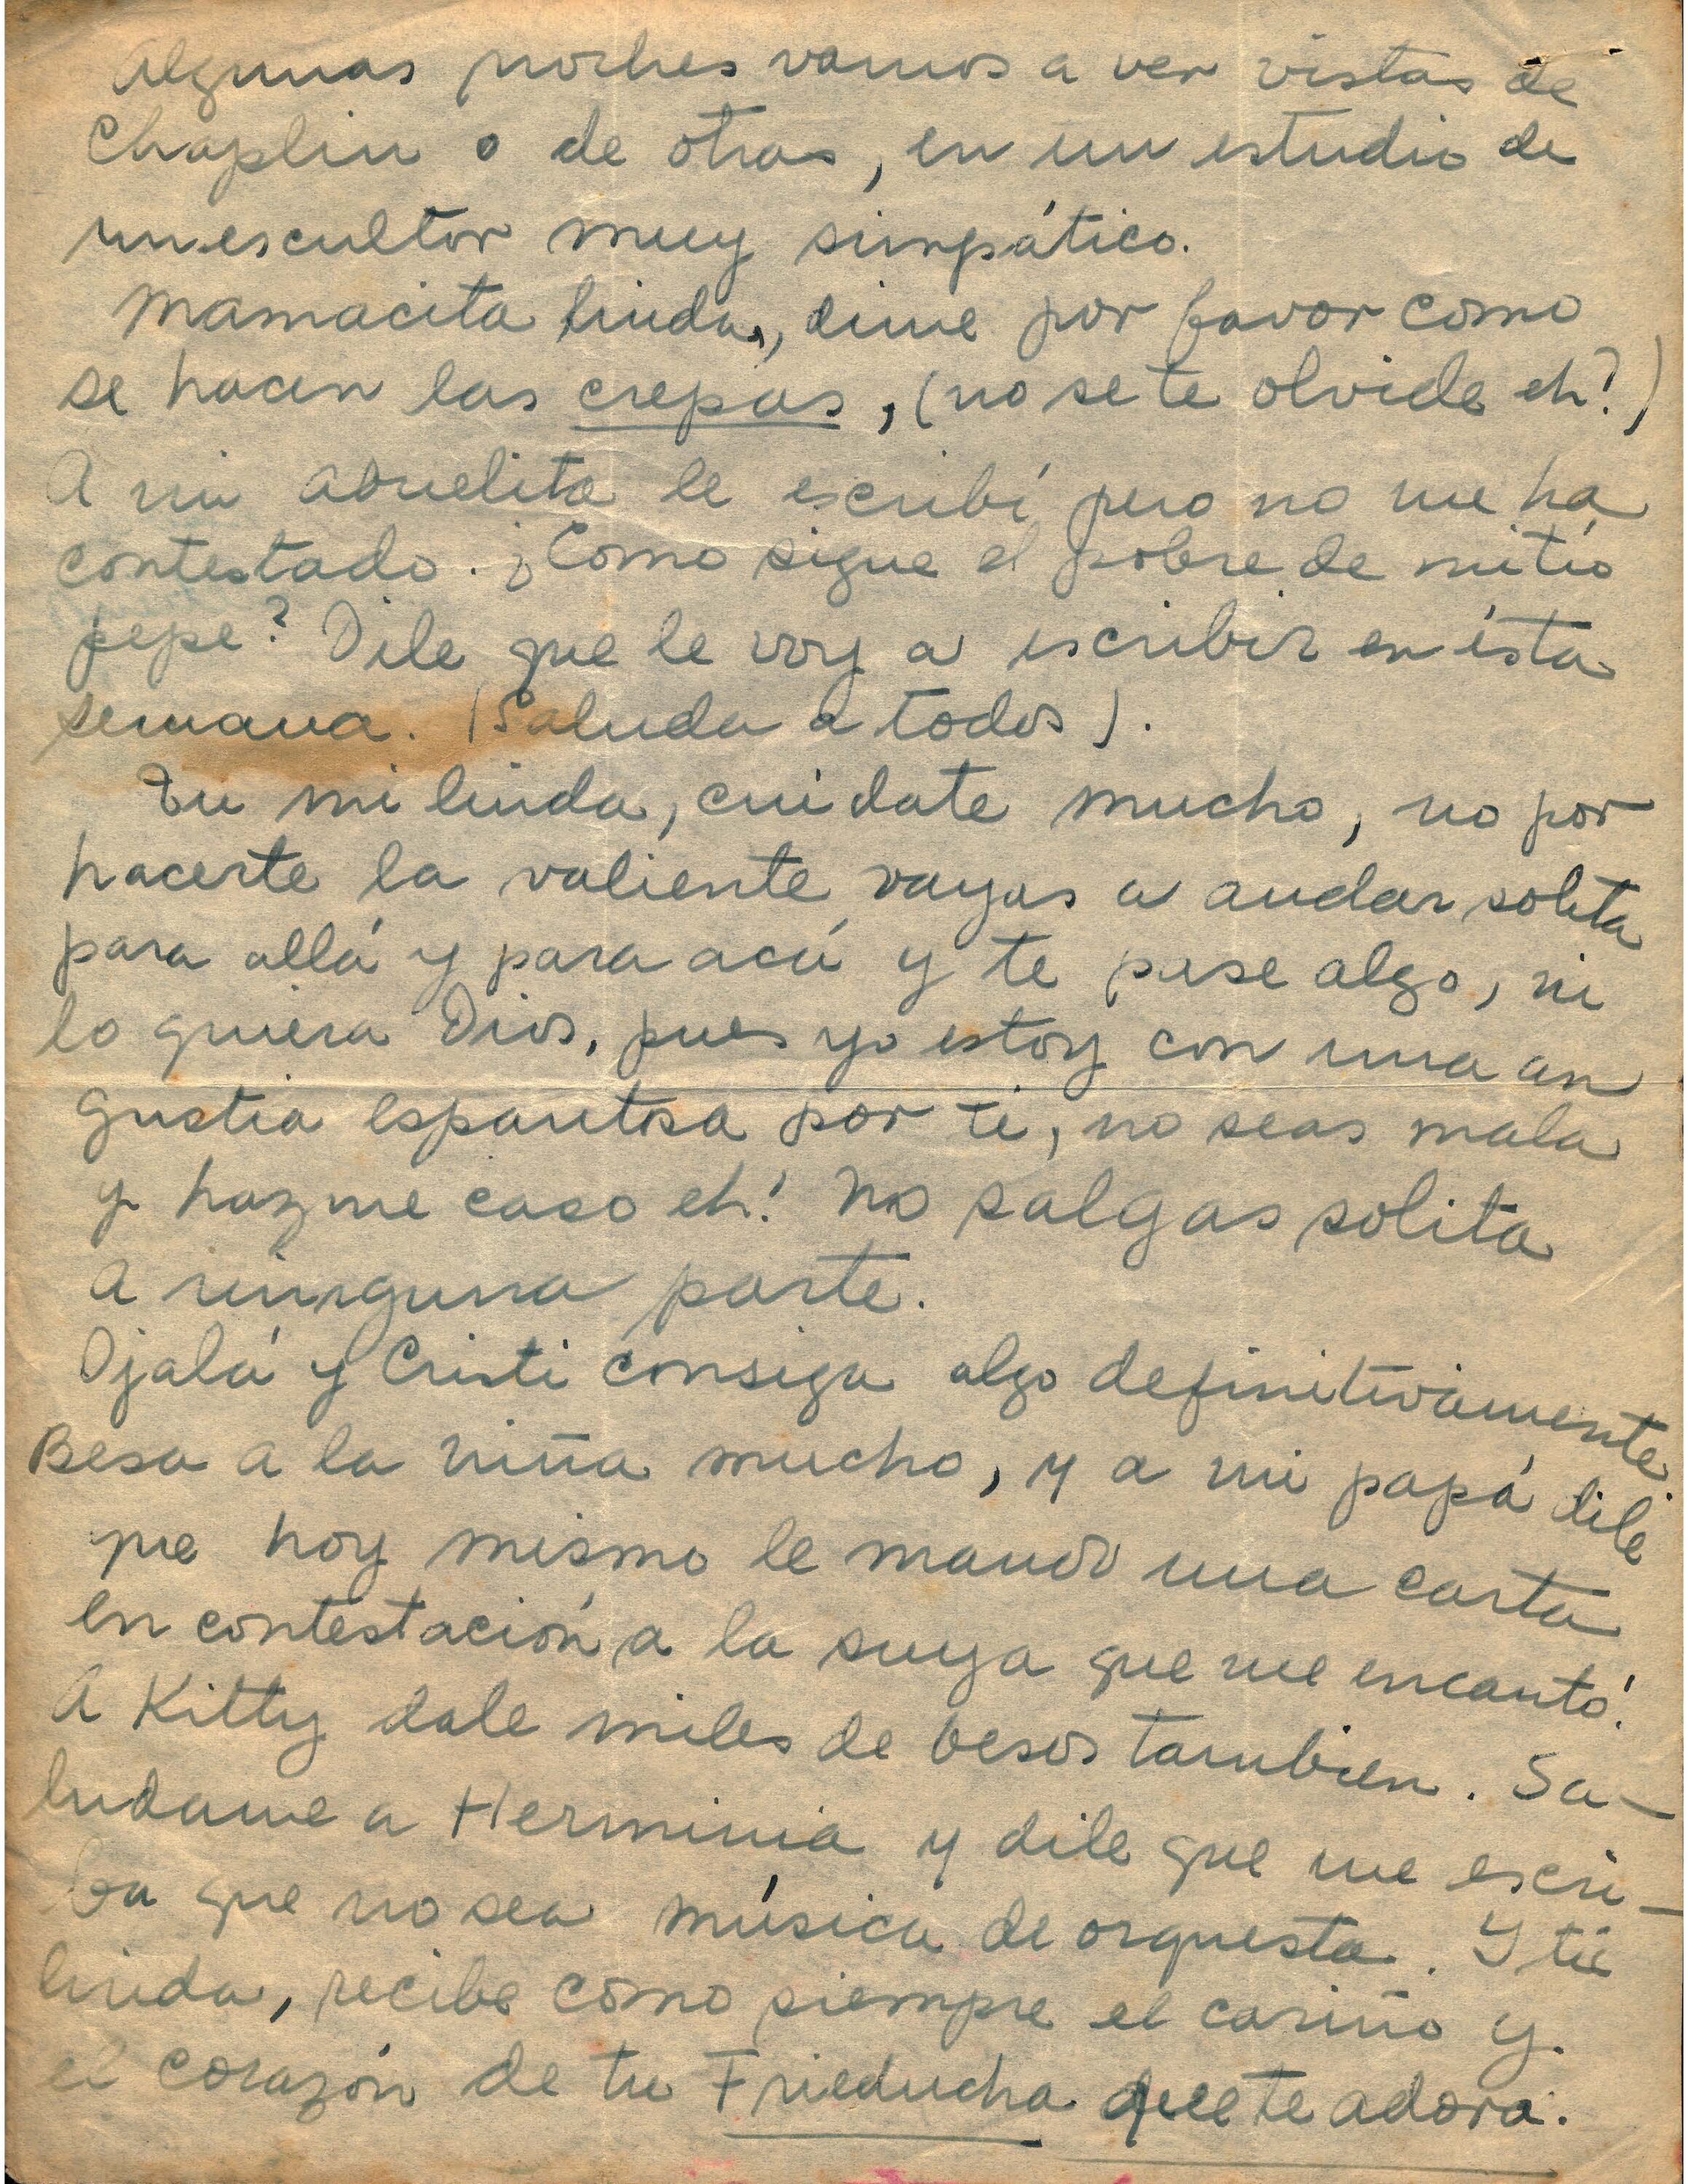 Algunas noches vamos a ver vistas de
Chaplin o de otras, en un estudio de
un escultor muy simpático.
Mamacita linda, dime por favor como
se hacen las crepas, (no se te olvide eh!)
A mi abuelita le escribí pero no me ha
contestado. ¿Como sigue el pobre de mi tío
pepe? Dile que le voy a escribir en ésta
semana. (Saluda a todos).
Tu mi linda, cuídate mucho, no por
hacerte la valiente vayas a andar solita
para allá y para acá y te pase algo, ni
lo quiera Dios, pues yo estoy con una an
gustia espantosa por ti, no seas mala
y hazme caso eh! No salgas solita
a ninguna parte.
Ojalá y Cristi consiga algo definitivamente.
Besa a la niña mucho, y a mi papá dile
que hoy mismo le mando una carta
en contestación a la suya que me encantó!
A Kitty dale miles de besos tambien. Sa-
ludame a Herminia y dile que me escri-
ba que no sea música de orquesta. Y tú
linda, recibe como siempre el cariño y
el corazón de tu Frieducha que te adora.